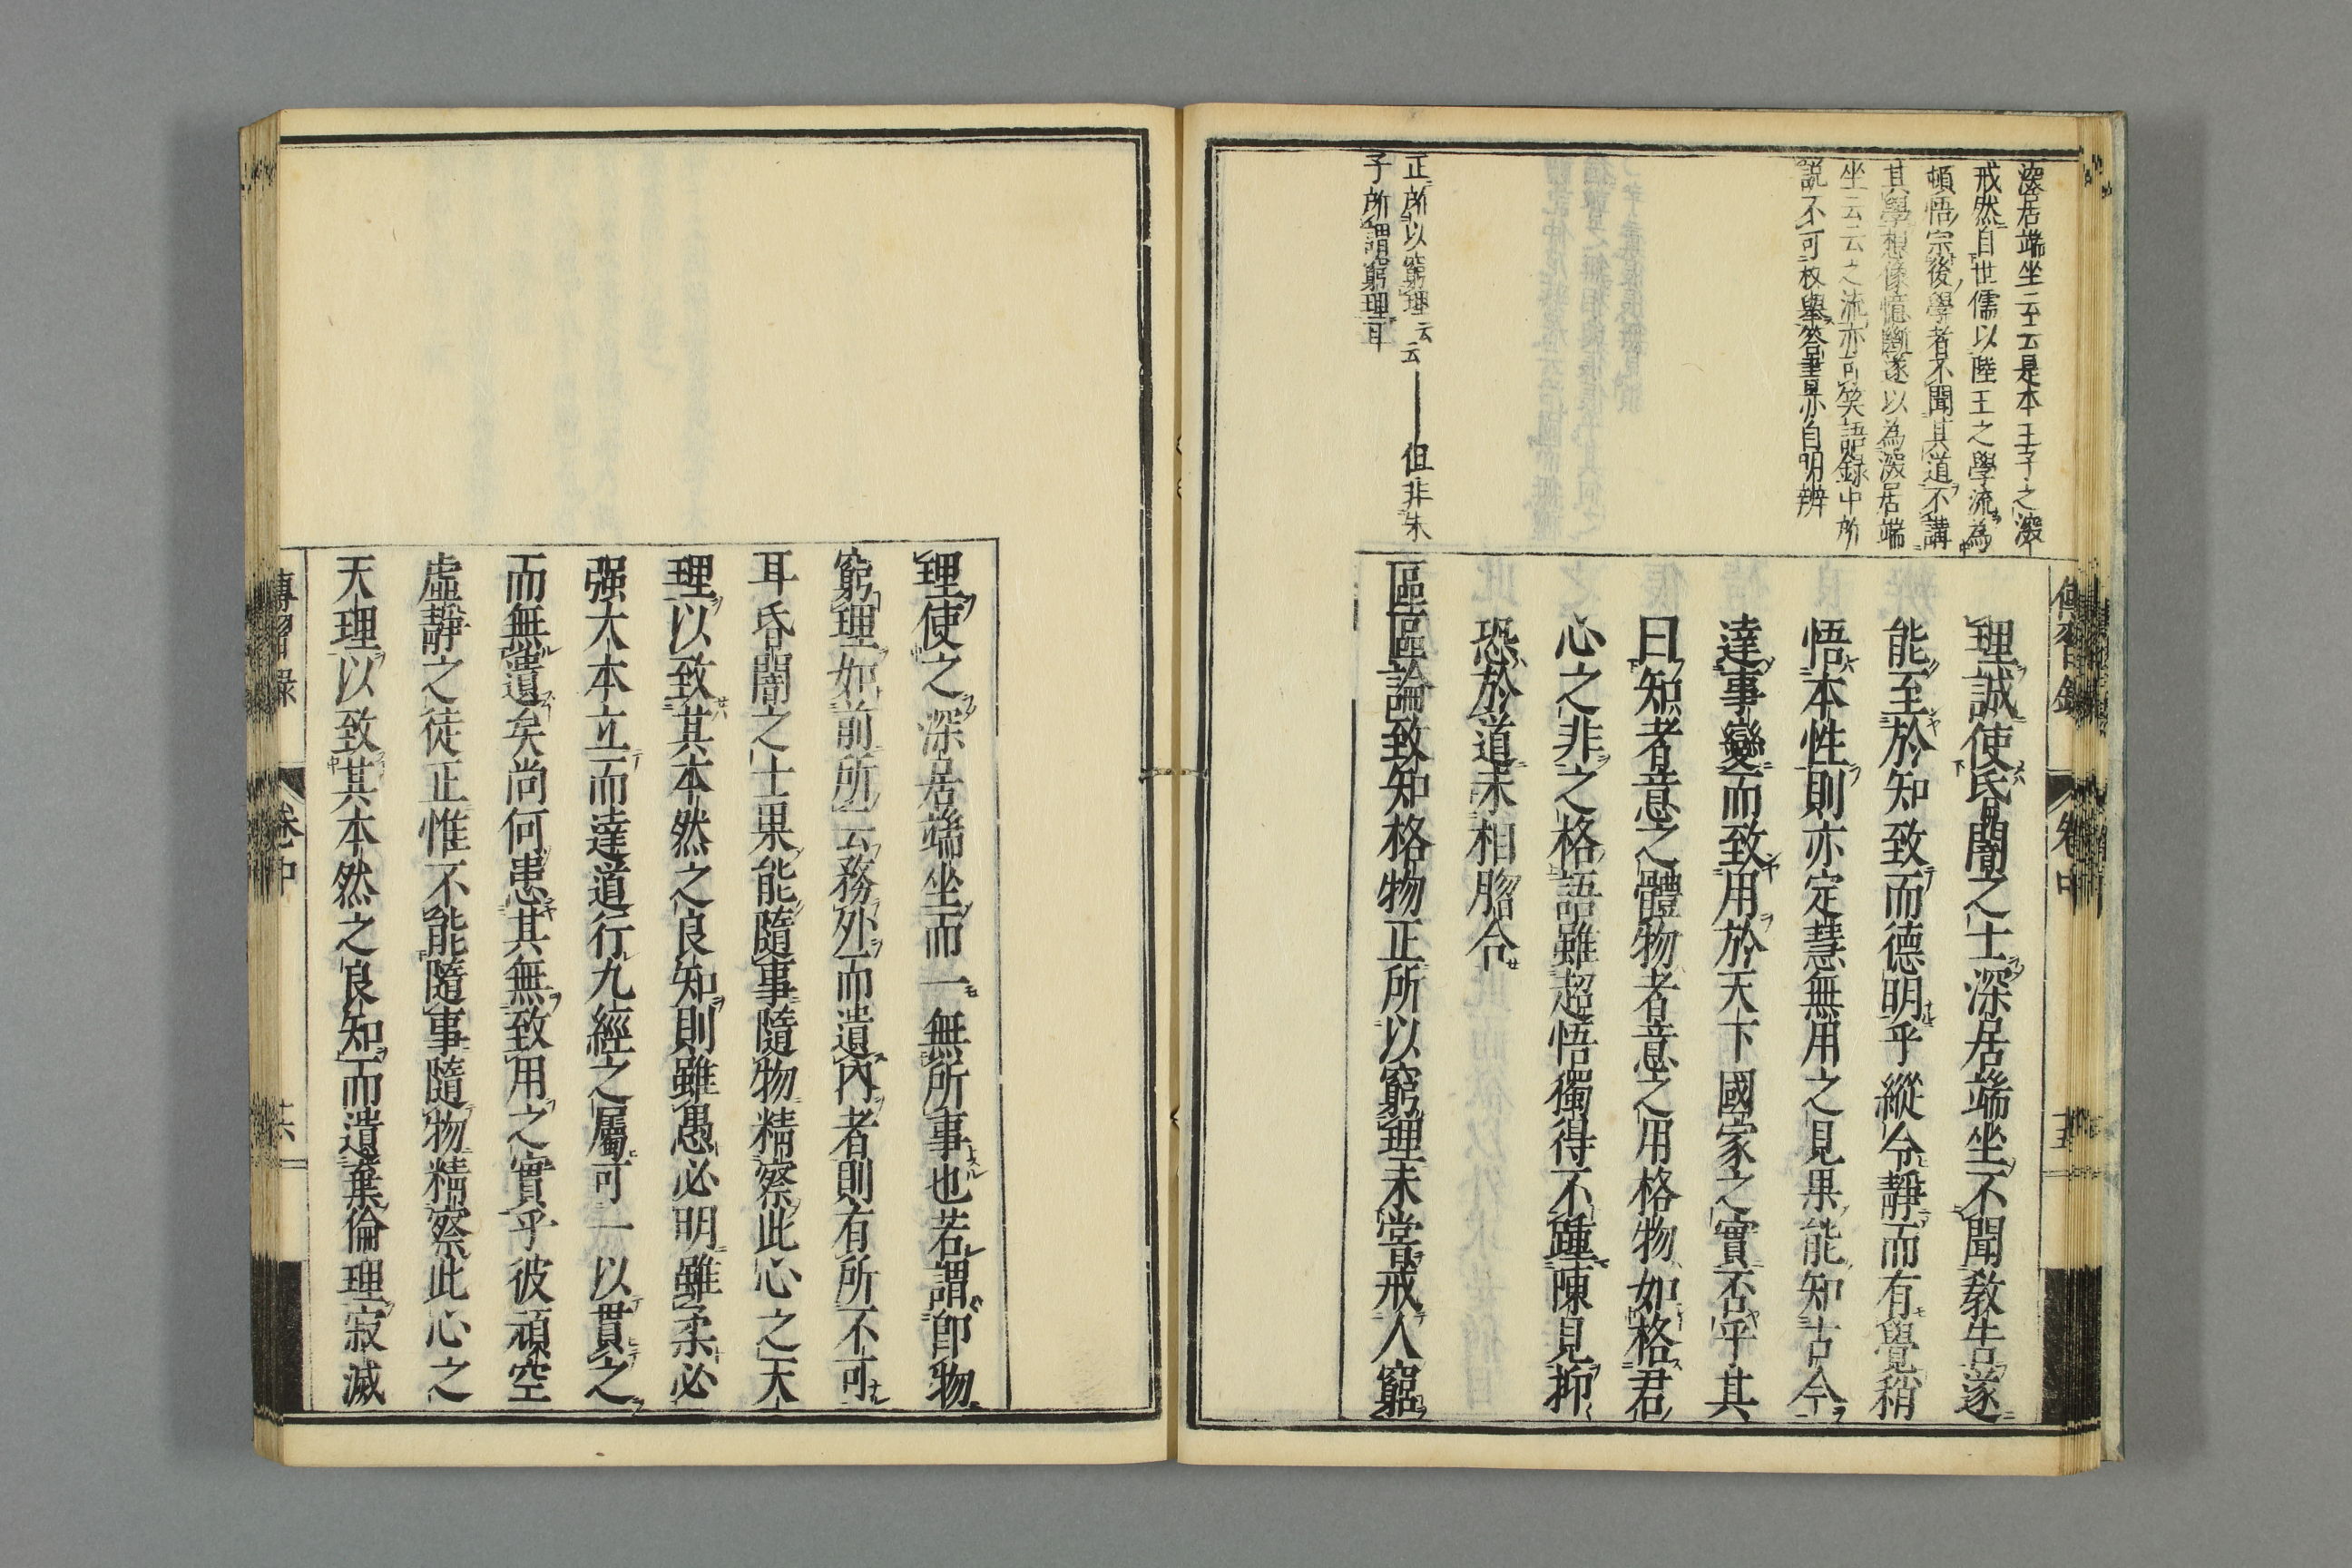 深居端坐云云是本王子之深
戒然自世儒以陸王之學流為
頓悟宗後學者不聞其道不講
其學想像憶斷遂以為深居端
坐云云之流亦可笑語錄中所
説不可枚舉答書亦自明辨
正所以窮理云云——但非朱
子所謂窮理耳
理誠使昏闇之士深居端坐不聞教告遂
能至於知致而德明乎縱令靜而有覺稍
悟本性則亦定慧無用之見果能知古今
達事變而致用於天下國家之實否乎其
曰知者意之體物者意之用格物如格君
心之非之格語雖超悟獨得不踵陳見抑
恐於道未相脗合
區區論致知格物正所以窮理未嘗戒人窮
傳習錄
卷中
十五
理使之深居端坐而一無所事也若謂即物
窮理如前所云務外而遺內者則有所不可
耳昏闇之士果能隨事隨物精察此心之天
理以致其本然之良知則雖愚必明雖柔必
强大本立而達道行九經之屬可一以貫之
而無遺矣尚何患其無致用之實乎彼頑空
虛靜之徒正惟不能隨事隨物精察此心之
天理以致其本然之良知而遺棄倫理寂滅
傳習錄
卷中